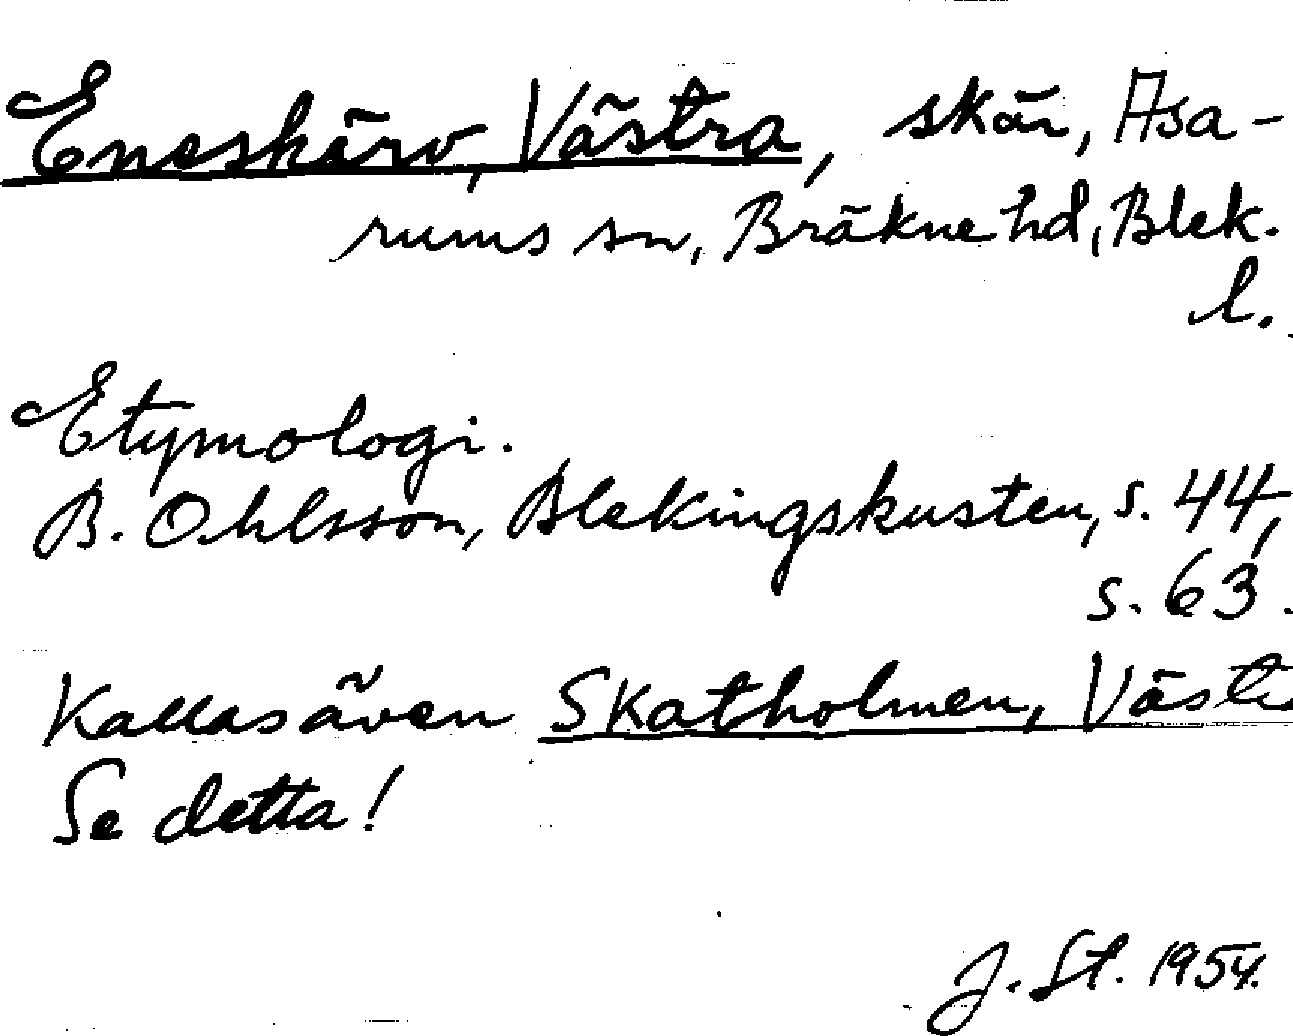 Eneskärv, Västra, skär, Asa-
rums sn, Bräkne hd, Blek.
l.
Etymologi.
B. Ohlsson, Blekingskusten, s. 44,
s. 63.
Kallas även Skatholmen, Västr
Se detta!
J. St. 1954.